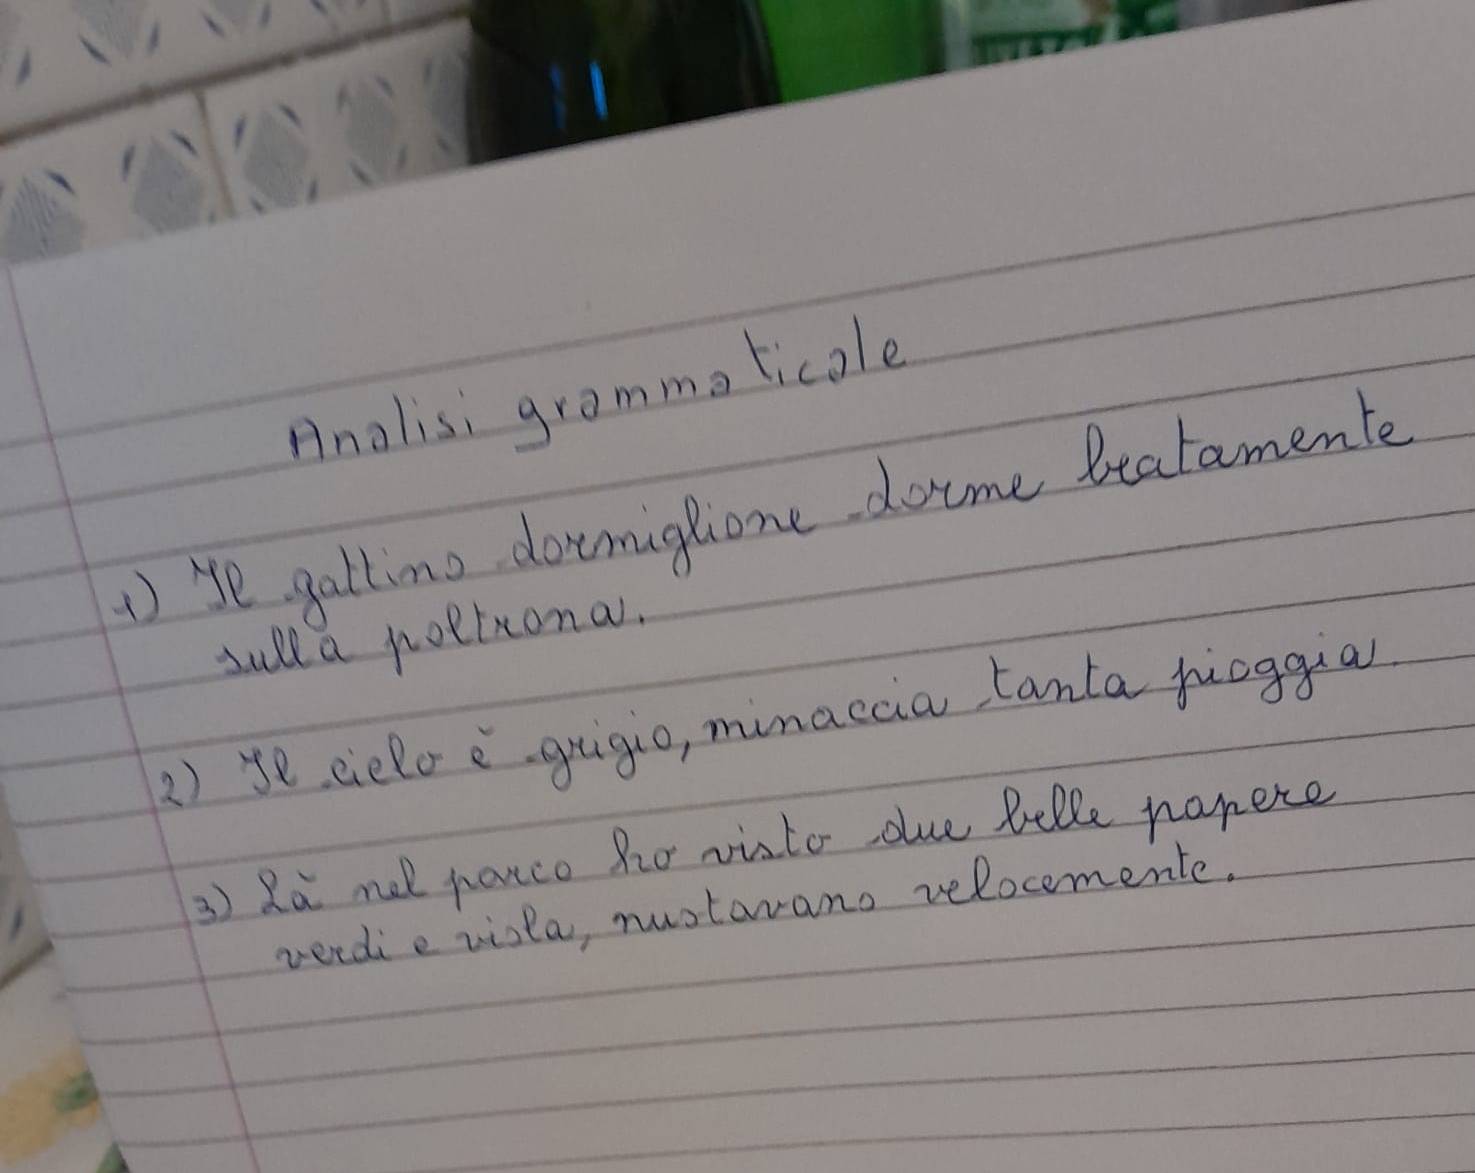 Analisi grammaticale
1) Il gattino dormiglione dorme beatamente
sulla poltrona.
2) Il cielo è grigio, minaccia tanta pioggia.
3) Là nel parco ho visto due belle papere
verdi e viola, nuotavano velocemente.